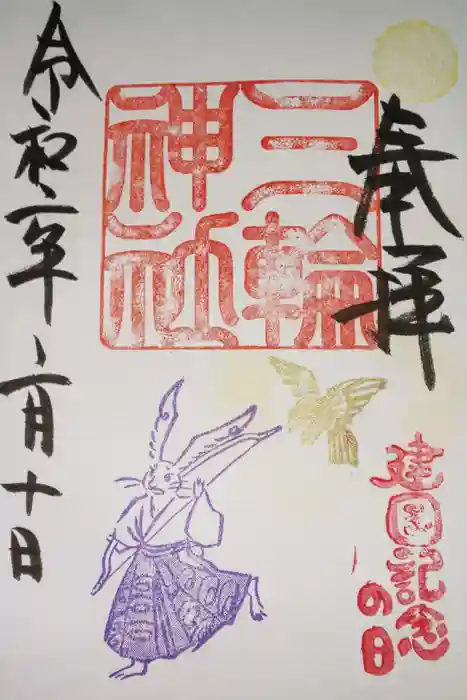 奉拝
三輪
神社
建国記念
の日
令和二年二月十日